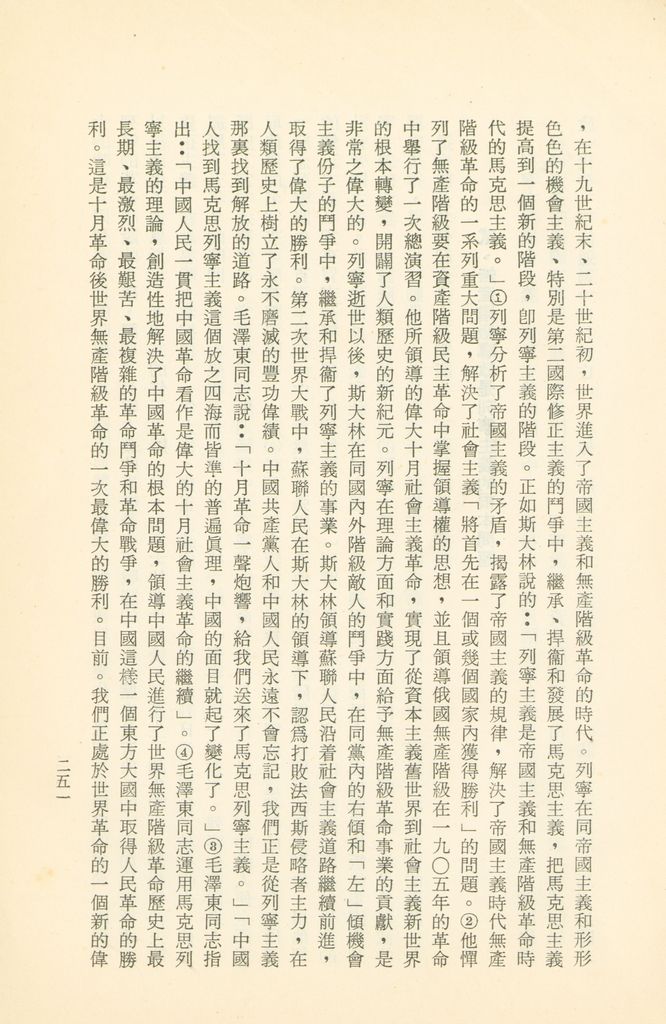 ，在十九世紀末、二十世紀初，世界進入了帝國主義和無產階級革命的時代。列寧在同帝國主義和形形
色色的機會主義、特別是第二國際修正主義的鬥爭中，繼承、捍衞和發展了馬克思主義，把馬克思主義
提高到一個新的階段，卽列寧主義的階段。正如斯大林說的：「列寧主義是帝國主義和無產階級革命時
代的馬克思主義。」①列寧分析了帝國主義的矛盾，揭露了帝國主義的規律，解決了帝國主義時代無產
階級革命的一系列重大問題，解決了社會主義「將首先在一個或幾個國家內獲得勝利」的問題。②他憚
列了無產階級要在資產階級民主革命中掌握領導權的思想，並且領導俄國無產階級在一九〇五年的革命
中舉行了一次總演習。他所領導的偉大十月社會主義革命，實現了從資本主義舊世界到社會主義新世界
的根本轉變，開闢了人類歷史的新紀元。列寧在理論方面和實踐方面給予無產階級革命事業的貢獻，是
非常之偉大的。列寧逝世以後，斯大林在同國內外階級敵人的鬥爭中，在同黨內的右傾和「左」傾機會
主義份子的鬥爭中，繼承和捍衞了列寧主義的事業。斯大林領導蘇聯人民沿着社會主義道路繼續前進，
取得了偉大的勝利。第二次世界大戰中，蘇聯人民在斯大林的領導下，認爲打敗法西斯侵略者主力，在
人類歷史上樹立了永不磨滅的豐功偉績。中國共產黨人和中國人民永遠不會忘記，我們正是從列寧主義
那裏找到解放的道路。毛澤東同志說：「十月革命一聲炮響，給我們送來了馬克思列寧主義。」「中國
人找到馬克思列寧主義這個放之四海而皆準的普遍眞理，中國的面目就起了變化了。」③毛澤東同志指
出：「中國人民一貫把中國革命看作是偉大的十月社會主義革命的繼續」。④毛澤東同志運用馬克思列
寧主義的理論，創造性地解決了中國革命的根本問題，領導中國人民進行了世界無產階級革命歷史上最
長期、最激烈、最艱苦、最複雜的革命鬥爭和革命戰爭，在中國這樣一個東方大國中取得人民革命的勝
利。這是十月革命後世界無產階級革命的一次最偉大的勝利。目前。我們正處於世界革命的一個新的偉
二五一